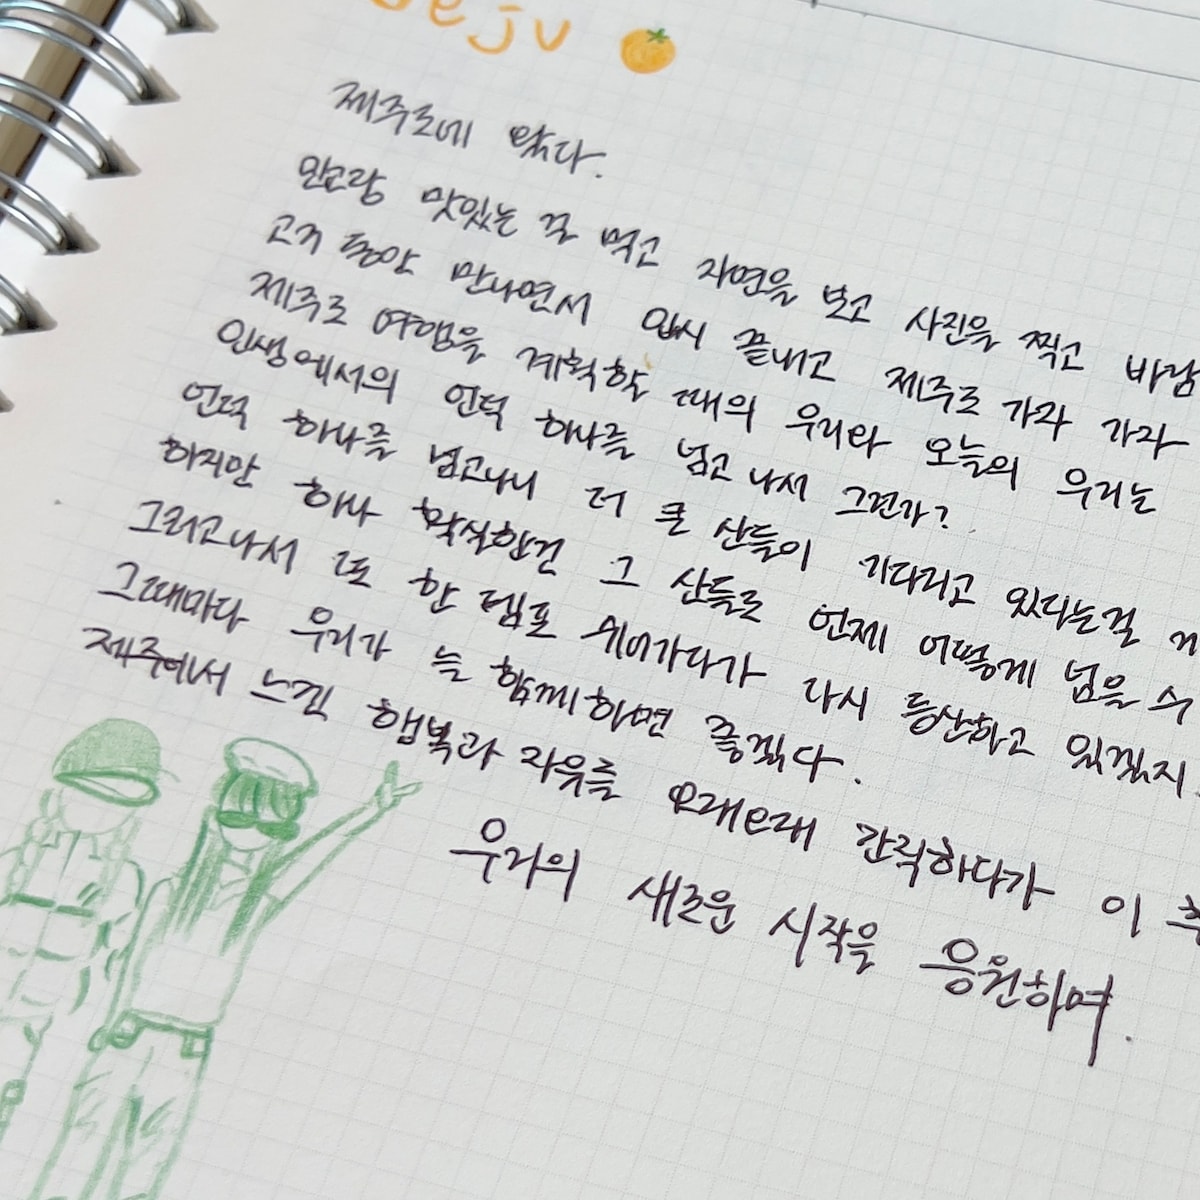 Jeju
제주도에 왔다.
맛있는 걸 먹고 자연을 보고 사진을 찍고 바람
고기 동안 만나면서 입시 끝내고 제주도 가자 가자
제주도 여행을 계획할 때의 우리와 오늘의 우리는
인생에서의 언덕 하나를 넘고 나서 그런가?
언덕 하나를 넘고나니 더 큰 산들이 기다리고 있다는걸
하지만 하나 확실한건 그 산들도 언제 어떻게 넘을 수
그리고나서 또 한 템포 쉬어가다가 다시 등산하고 있겠지.
그때마다 우리가 늘 함께하면 좋겠다.
제주에서 느낀 행복과 자유를 오래오래 간직하다가 이
우리의 새로운 시작을 응원하며.